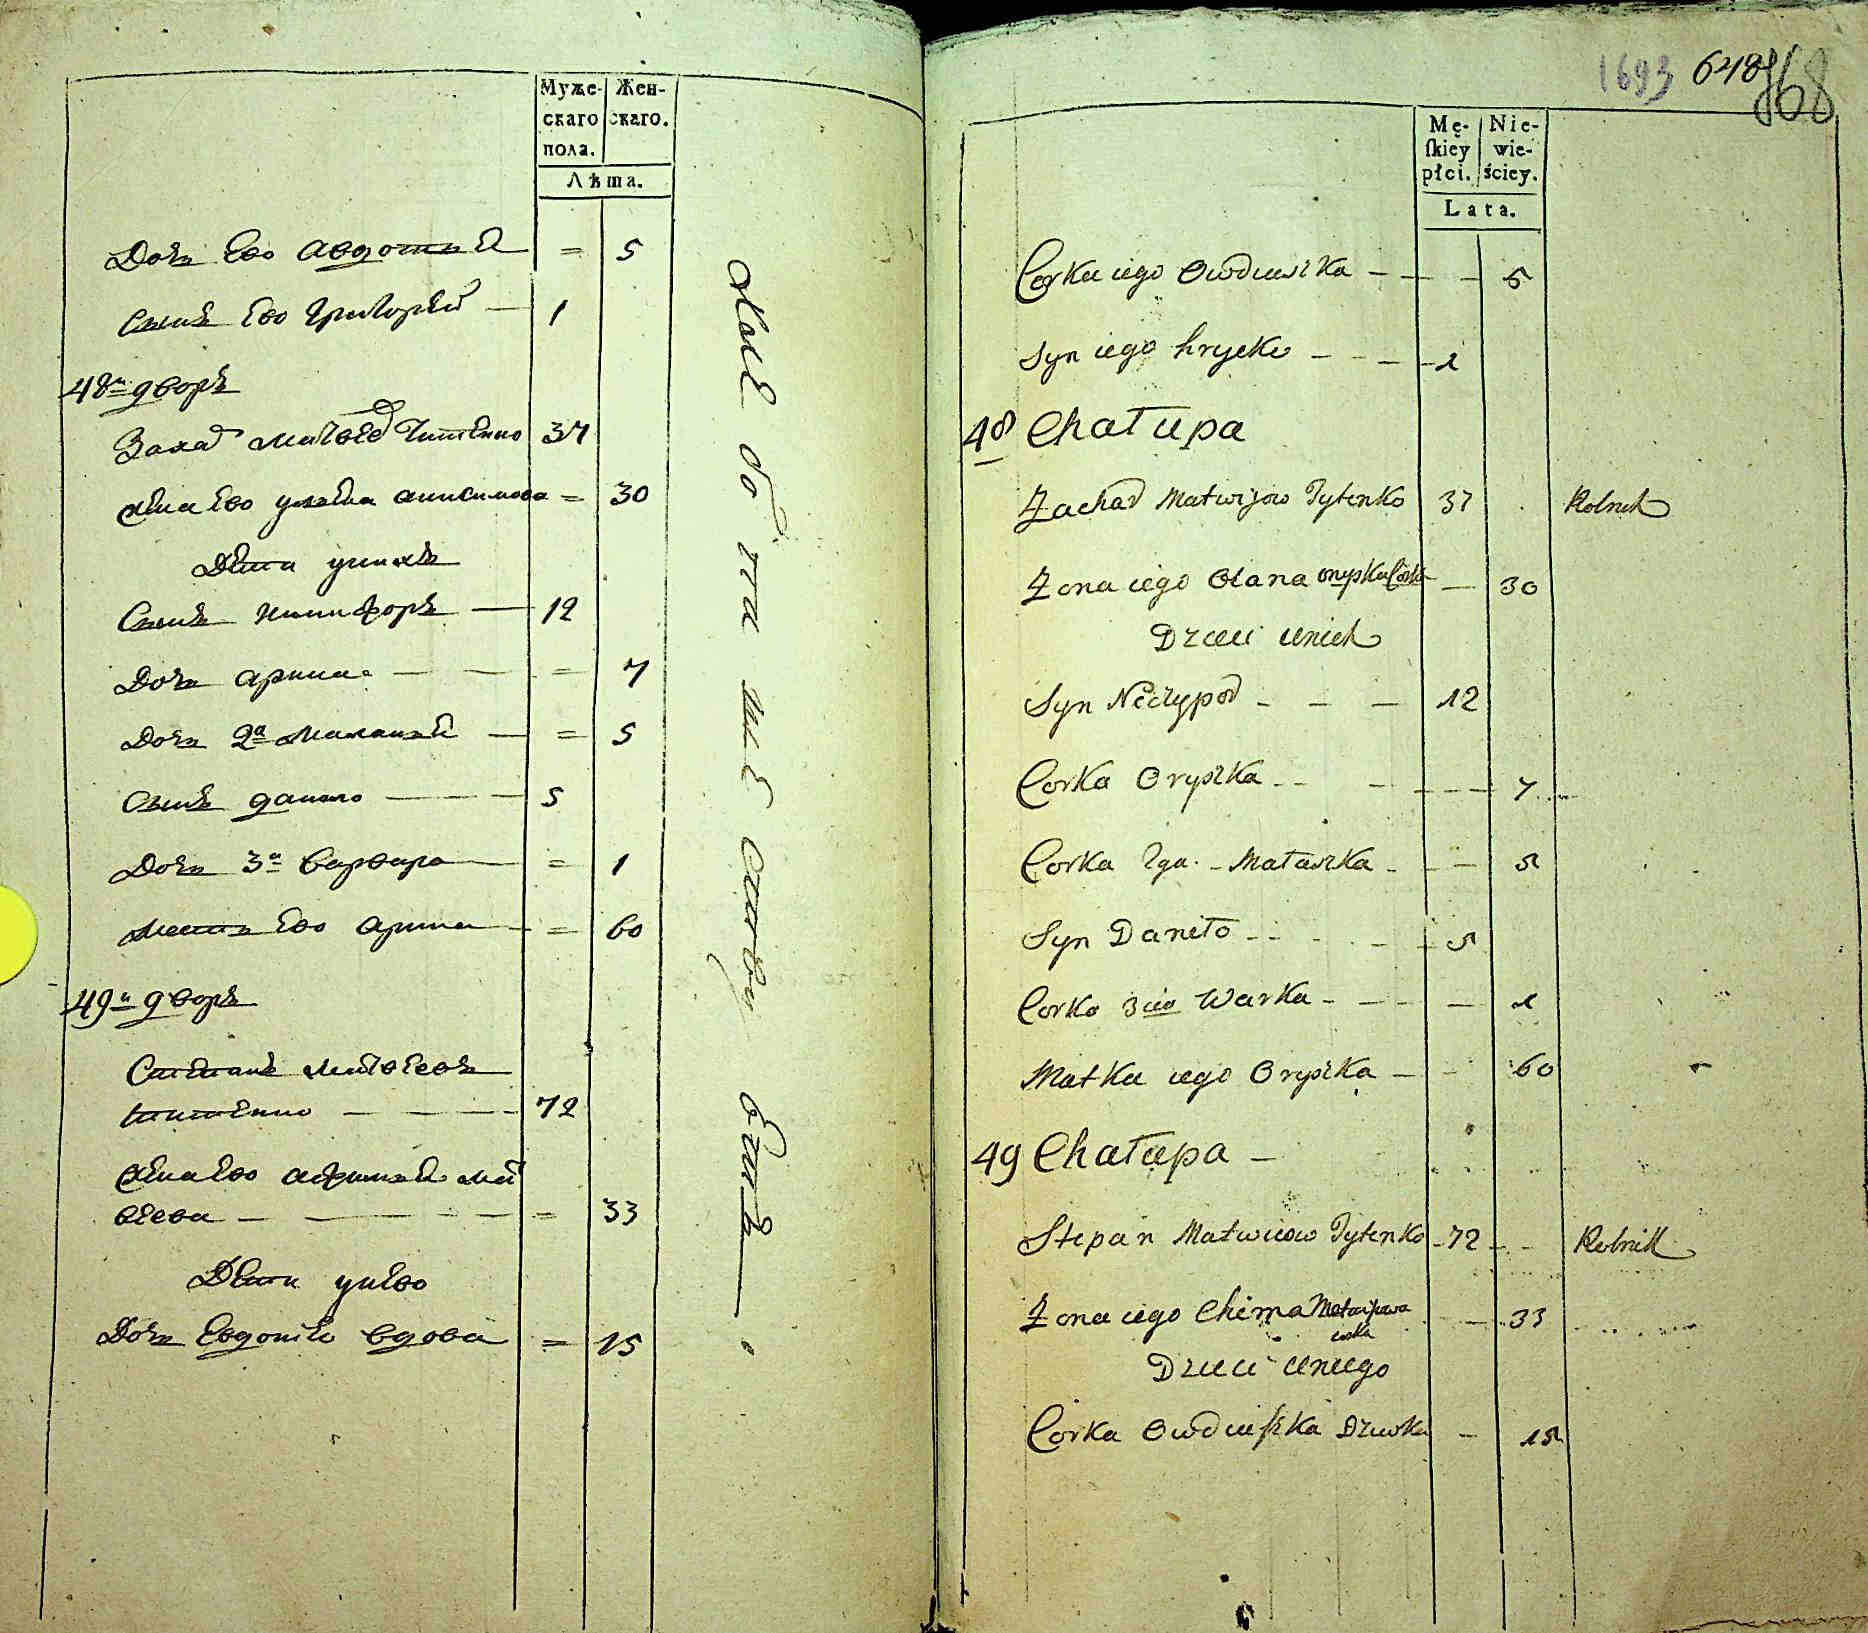 Муже-
скаго
пола.
Жен-
скаго.
Лѣта.
Дочь Его Авдотия = 5
Сынъ Его Григорей — 1
48й дворъ
Захар Матвеев Титенко 37
Жена Его улияна = 30
Дети у нихъ
Сынъ Никифоръ — 12
Дочь Арина — = 7
Дочь 2я Малания — = 5
Сынъ Данило — 5
Дочь 3я Варвара — = 1
Мать Его Арина — = 60
49й дворъ
Степанъ Матвеевъ
Титенко — 72
Жена Его Афимия Мат
веева — = 33
Дети у него
Дочь Евдотия вдова = 15
1693 648 868
Mę-
ſkiey
płci.
Nie-
wie-
ściey.
Lata.
Corka iego Owduszka — 5
Syn iego hrycko — 1
48 Chałupa
Zachar Matwijow Tytenko 37 Rolnik
Zona iego Olana Onyska Corka — 30
Dzieci unich
Syn Neczypor — 12
Corka Oryszka — 7
Corka 2ga. Małaszka — 5
Syn Daniło — 5
Corka 3cia Warka — 1
Matka iego Oryszka — 60
49 Chałupa —
Stepan Matwieiow Tytenko 72 Rolnik
Zona iego Chima Matwijowa
corka — 33
Dzieci uniego
Corka Owduszka Dziewka — 15